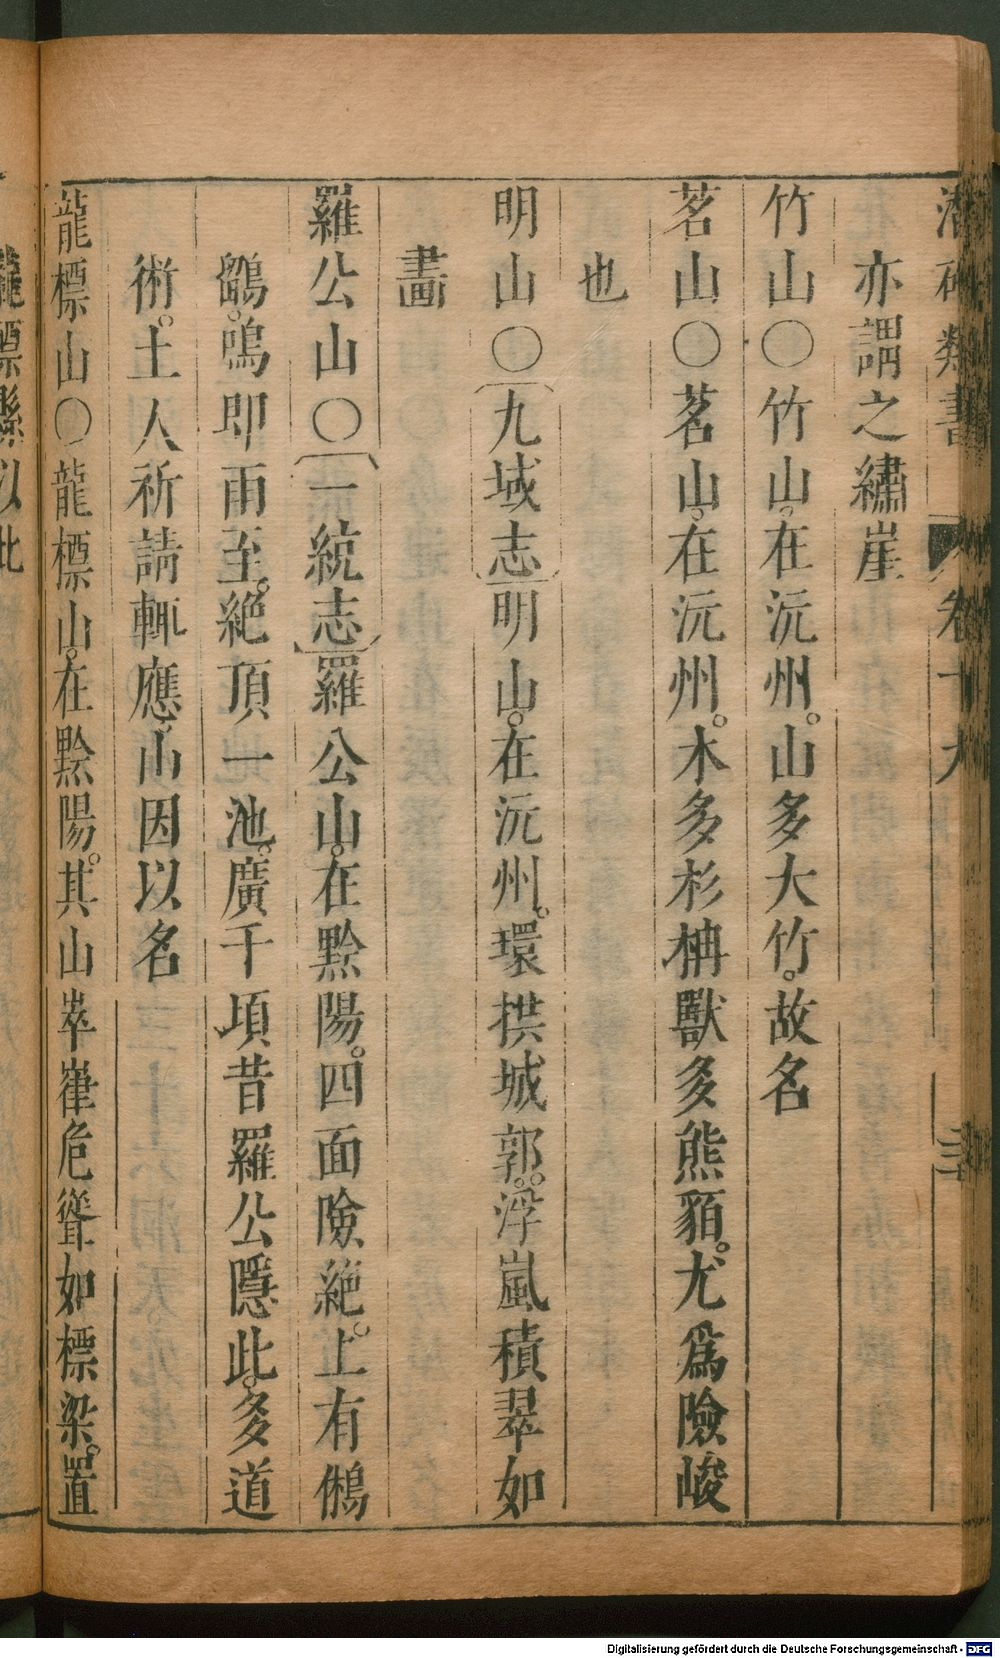 潛確類書 卷十九 三
亦謂之繡崖
竹山○竹山。在沅州。山多大竹。故名
茗山○茗山。在沅州。木多杉枏獸多熊貊。尤爲險峻
也
明山○〔九域志〕明山。在沅州。環拱城郭。浮嵐積翠如
畫
羅公山○〔一統志〕羅公山。在黔陽。四面險絶。上有鵂
鶹。鳴即雨至。絶頂一池。廣千項昔羅公隱此。多道
術。土人祈請輒應。山因以名
龍標山○龍標山。在黔陽。其山崒嵂危聳如標梁。置
龍標縣以此
Digitalisierung gefördert durch die Deutsche Forschungsgemeinschaft - DFG